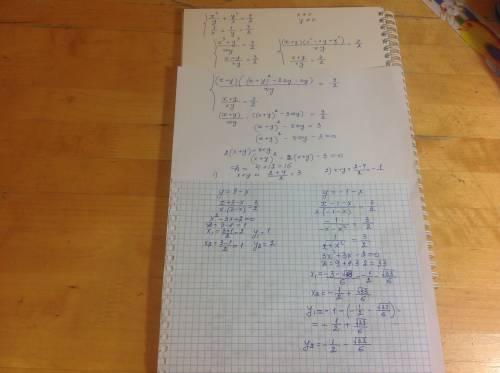 { x²/y + y²/x = 9/2
1/x + 1/y = 3/2
x ≠ 0
y ≠ 0
{ x³+y³/xy = 9/2
x+y/xy = 3/2
{ (x+y)(x²-xy+y²)/xy = 9/2
x+y/xy = 3/2
{ (x+y)((x+y)²-2xy-xy)/xy = 9/2
x+y/xy = 3/2
(x+y)/xy · ((x+y)²-3xy) = 9/2
(x+y)²-3xy = 3
(x+y)²-3xy-3=0
2(x+y)=3xy
(x+y)²-2(x+y)-3=0
D = 4+12=16
1) x+y = 2+4/2 = 3
2) x+y = 2-4/2 = -1
y=3-x
x+3-x/x(3-x) = 3/2
x²-3x+2=0
D=9-8=1
x₁=3+1/2=2 y₁=1
x₂=3-1/2=1 y₂=2
y=-1-x
x-1-x/x(-1-x) = 3/2
-1/-x-x² = 3/2
1/x+x² = 3/2
3x²+3x-2=0
D=9+4·3·2=33
x₁=-3-√33/6=-1/2-√33/6
x₂=-1/2+√33/6
y₁=-1-(-1/2-√33/6)=
=-1/2+√33/6
y₂=-1/2-√33/6